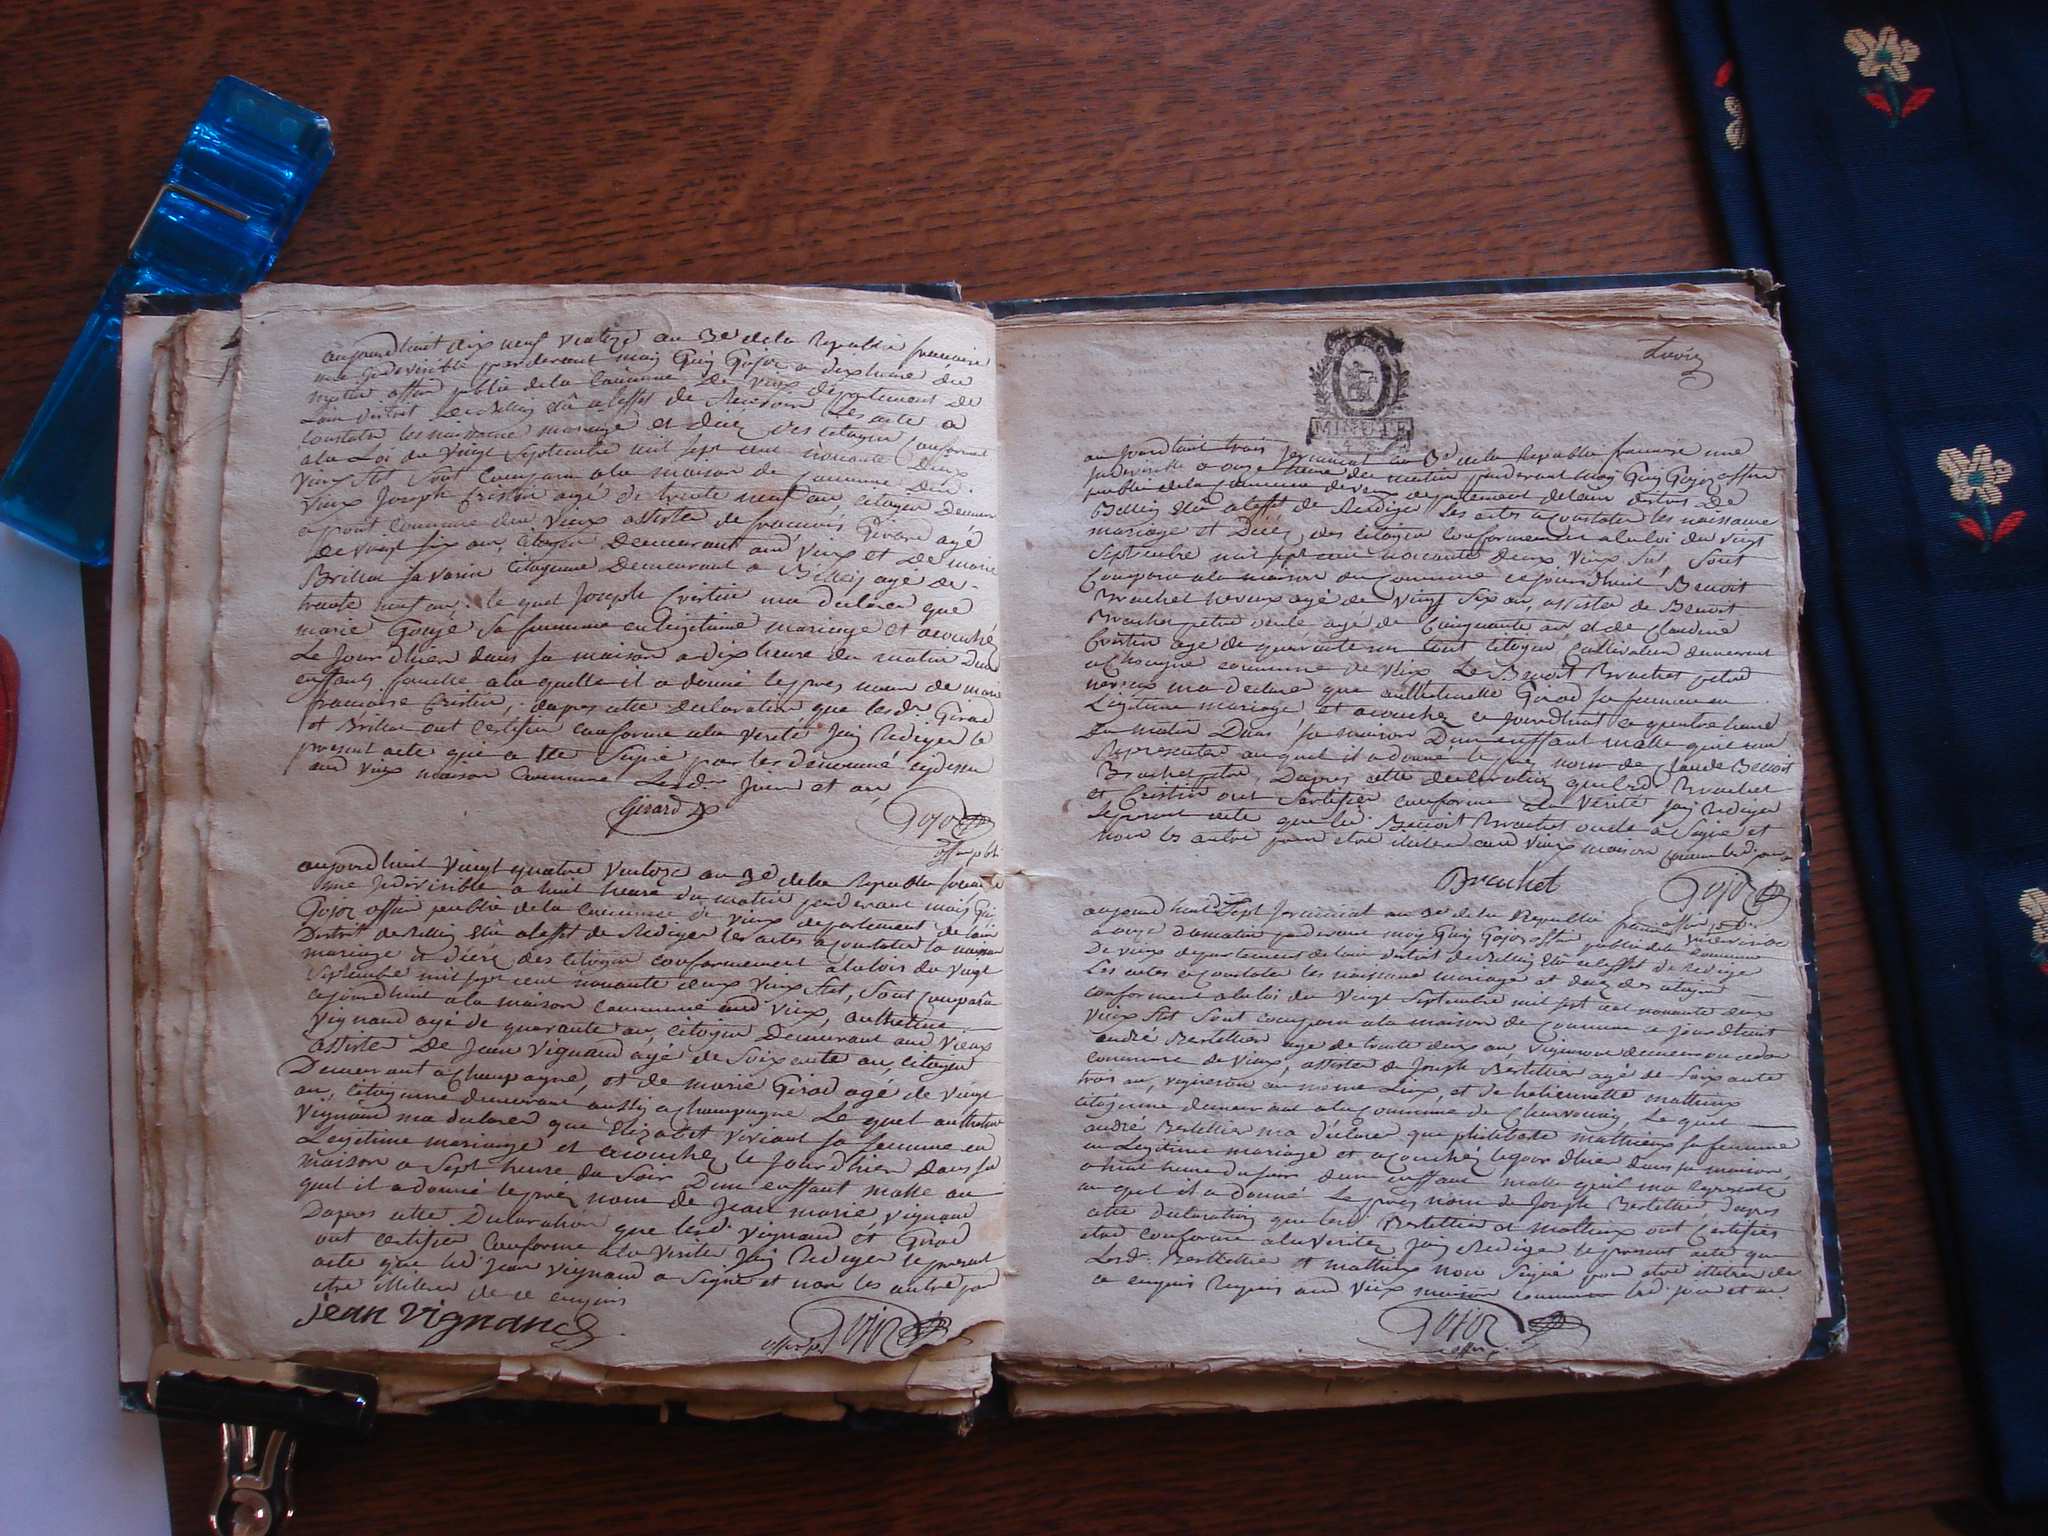 aujourdhuit dix neuf ventose an 3e de la Republi francaise
une Indivisible pardevant moy Guy Gojoz a dix heure du
mattin offier public de la Commune De Vieux département De
Lain district De Belley élû a leffet de Recevoir Les acte a
Constater les naissance mariage et déces des Citoyen Conformet
a la Loi du Vingt Septembre mil sept cent nonante Deux
Vieux Stil Sont Comparu a la maison de Commune Dud.
Vieux Joseph Cristin agé de trante neuf an, citoyen Demeur
a pont Commune dud Vieux assister de francois Girard agé
De Vingt six an, citoyen Demeurant aud Vieux et De marie
Brillat Savarin Citoyenne Demeurant a Belley age De
trante neuf an. le quel Joseph Cristin ma declarer que
marie Goujé sa femme en legitime mariage et acouché
Le Jour dhier dans sa maison a dix heure du matin Dun
enffant femelle a la quelle il a donné le pres nom de marie
francoise Cristin, dapres cette declaration que les dr. Girard
et Brillat ont certifier Conforme a la Verité Jay Rediger le
present acte que a ete Signé par les denommé cydessu
aud Vieux maison Commune Lesdr. Jour et an,
Girard
Gojoz
offier pbl
aujourdhuit Vingt quatre Ventose an 3e de la Republi francaise
une Indivisible a huit heure du matin pardevant moy Gui
Gojoz offier public de la Commune de Vieux departement de lain
District de Belley Elû a leffet de Rediger les actes a Constater la naissan
mariage et déces des Citoyen conformement a la lois du Vingt
Septembre mil sept cent nonante deux Vieux Stil, Sont Comparû
cejourdhuit a la maison Commune aud Vieux, anthelme
Vignand agé de quarante an, citoyen Demeurant aud Vieux
assister De Jean Vignand agé de Soixante an, citoyen
Demeurant a Champagne, et de marie Girod agé de Vingt
an, Citoyenne demeurant aussi a Champagne Le quel anthelme
Vignand ma declarer que Elizabet Viviant sa femme en
Legitime mariage et acouchez le Jour dhier Dans sa
maison a Sept heure du Soir Dun enffant malle au
quel il a donné le prez nom de Jean marie Vignand
Dapres cette Declaration que lesd. Vignand et Girod
ont certifier Conforme a la Verite Jay Rediger le present
acte que led Jean Vignand a Signé et non les autre pour
etre illiteré de ce enquis
jean vignand
offier pbl Gojoz
MINUTE
aujourdhuit trois Jerminal an 3e de la Republi francaise une
Indivisible a onze heure du matin pardevant moy Guy Gojoz offier
public de la Commune de Vieux departement de lain district De
Belley Elû a leffet de Rediger Les actes a Constater les naissance
mariage et Déces des Citoyen Conformement a la loi du Vingt
Septembre mil sept cent nonante deux Vieux Stil, Sont
Comparu a la maison du Commune cejourdhuit Benoit
Brachet neveux agé de Vingt Six an, assister de Benoit
Brachet agé de Cinquante an et de Claudine
Cristin agé de quarante un tout citoyen Cultivateur demeurant
a Chongne commune de Vieux Le Benoit Brachet
neveux ma declaré que anthelmette Girod sa femme en
Legitime mariage, et acouchez cejourdhuit a quatre heure
Du matin Dans sa maison Dun enffant malle quil ma
Representer au quel il a donné le prez nom de Claude Benoit
Brachet, Dapres cette declaration que lesd. Brachet
et Cristin ont Certifier conforme a la Verité Jay Rediger
le present acte que led. Benoit Brachet oncle a Signé et
non les autre pour etre illiteré aud Vieux maison Commune led jour
Brachet
Gojoz
aujourdhuit Sept Jerminal an 3e de la Republi francaise Indivisible
a onze Dumatin pardevant moy Guy Gojoz offier public de la Commune
De Vieux departement de lain district de Belley Elû a leffet de Rediger
Les actes a Constater les naissance mariage et deces des citoyen
conforment a la loi du Vingt Septembre mil sept cent nonante deux
Vieux Stil Sont comparu a la maison de Commune cejourdhuit
andré Bertellier agé de trante deux an vigneron demeurant
commune de Vieux, assister de Joseph Bertellier agé de Soixante
trois an, vigneron au meme Lieux, et de hetiennette matthieux
citoyenne demeurant a la Commune de Charvonay, Le quel
andré Bertellier ma declarer que philiberte matthieux sa femme
en Legitime mariage et acouché le jour dhier dans sa maison,
a huit heure du soir dun enffant malle quil ma represente
au quel il a donné Le pres nom de Joseph Bertellier, dapres
cette declaration que lesd. Bertellier et matthieux ont Certifier
etre conforme a la Verite, Jay Rediger le present acte que
Lesd. Bertellier et matthieux non Signé pour etre illiteré de
ce enquis Requis aud Vieux maison commune led. jour et an.
Gojoz
offier